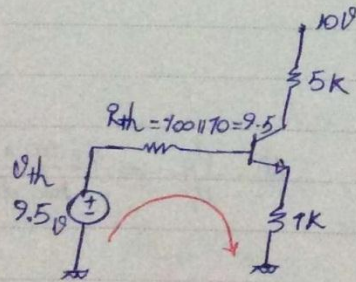 10v
5K
Rth = 100||10 = 9.5
vth
9.5v
1K